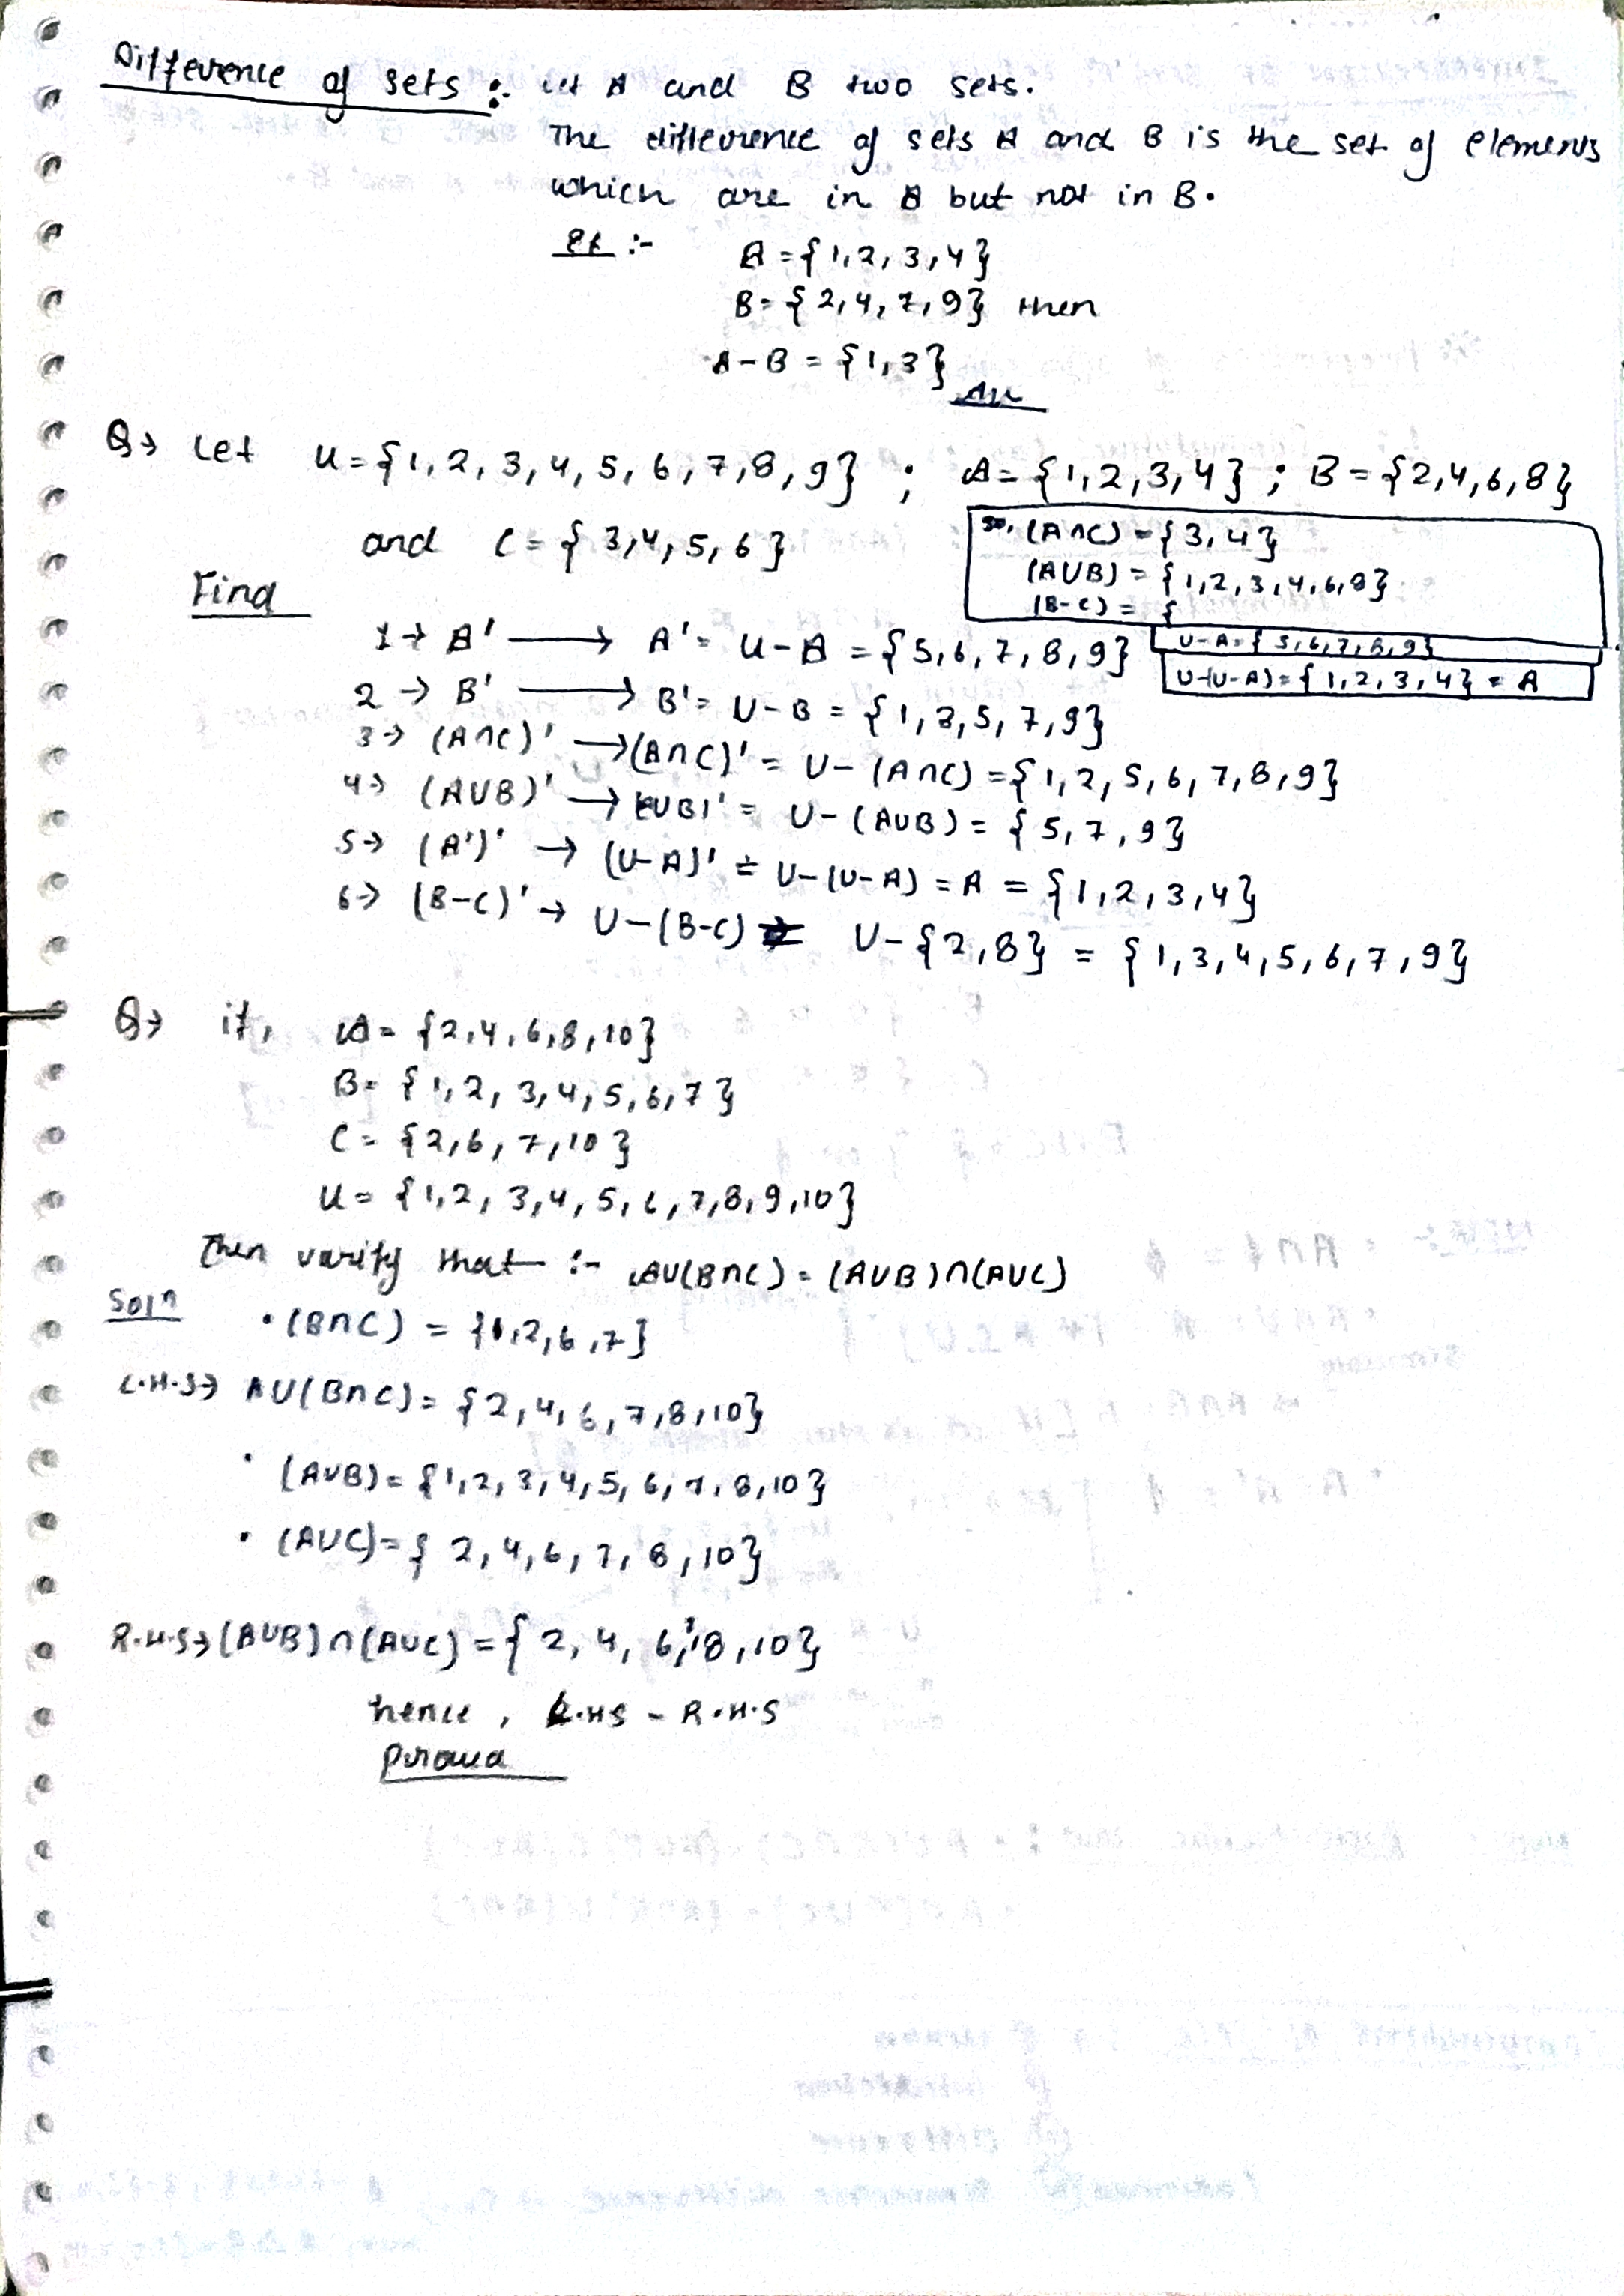 Difference of sets :- let A and B two sets.
The difference of sets A and B is the set of elements
which are in A but not in B.
Ex :- A = {1,2,3,4}
B = {2,4,7,9} then
A-B = {1,3} Ans
Q→ Let U = {1,2,3,4,5,6,7,8,9} ; A = {1,2,3,4} ; B = {2,4,6,8}
and C = {3,4,5,6}
so, (A∩C) = {3,4}
(A∪B) = {1,2,3,4,6,8}
(B-C) = {
U-A = {5,6,7,8,9}
U-(U-A) = {1,2,3,4} = A
Find
1→ A' → A' = U-A = {5,6,7,8,9}
2→ B' → B' = U-B = {1,3,5,7,9}
3→ (A∩C)' → (A∩C)' = U-(A∩C) = {1,2,5,6,7,8,9}
4→ (A∪B)' → (A∪B)' = U-(A∪B) = {5,7,9}
5→ (A')' → (U-A)' = U-(U-A) = A = {1,2,3,4}
6→ (B-C)' → U-(B-C) = U-{2,8} = {1,3,4,5,6,7,9}
Q→ if, A = {2,4,6,8,10}
B = {1,2,3,4,5,6,7}
C = {2,6,7,10}
U = {1,2,3,4,5,6,7,8,9,10}
Then varify that :- A∪(B∩C) = (A∪B)∩(A∪C)
Soln
• (B∩C) = {2,6,7}
L.H.S→ A∪(B∩C) = {2,4,6,7,8,10}
• (A∪B) = {1,2,3,4,5,6,7,8,10}
• (A∪C) = {2,4,6,7,8,10}
R.H.S→ (A∪B)∩(A∪C) = {2,4,6,7,8,10}
hence, L.HS = R.H.S
proved